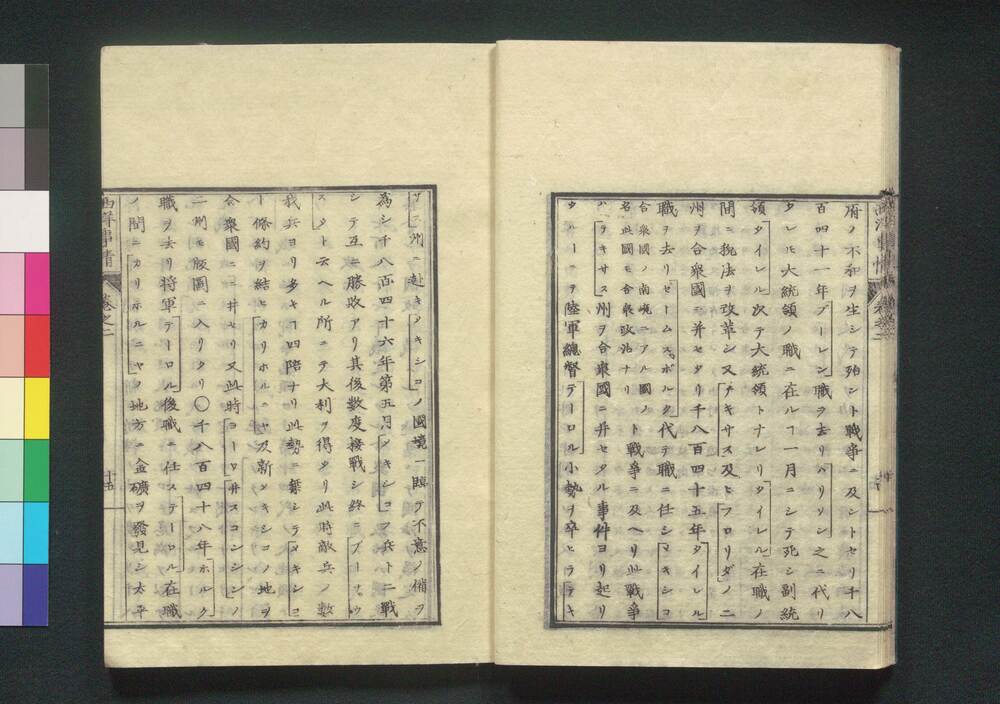 府ノ不和ヲ生シテ殆ント戰爭ニ及ントセリ千八
百四十一年「ブーレン」職ヲ去リ「ハリリソン」之ニ代リ
タレヒ大統領ノ職ニ在ルヿ一月ニシテ死シ副統
領「タイレル」次テ大統領トナレリ「タイレル」在職ノ
間ニ税法ヲ改革シ又「テキサス」及ヒ「フロリダ」ノ二
州ヲ合衆國ニ并セタリ千八百四十五年「タイレル」
職ヲ去リ「ゼームスポルク」代テ職ニ任シ「マキシコ」
合衆國ノ南境ニアル國ノ
名此國モ合衆政治ナリ
ト戰爭ニ及ヘリ此戰爭
ハ「テキサス」州ヲ合衆國ニ并セタル事件ヨリ起リ
陸軍總督「テーロル」小勢ヲ卒ヒ「テキ
サス」州ニ赴キ「メキシコ」ノ國境ニ臨テ不意ノ備ヲ
為シ千八百四十六年第五月「メキシコ」ノ兵ト二戰
シテ互ニ勝敗アリ其後數度接戰シ終ニ
タト云ヘル所ニテ大利ヲ得タリ此時敵兵ノ數
我兵ヨリ多キヿ四陪ナリ此勢ニ乗シテ「メキシコ」
ト條約ヲ結ヒ「カリホルニヤ」及新「メキシコ」ノ地ヲ
合衆國ニ并セリ又此時
二州モ版圖ニ入リタリ〇千八百四十八年「ポルク」
職ヲ去リ將軍「テーロル」後職ニ任ス「テーロル」在職
ノ間ニ「カリホルニヤ」ノ地方ニ金礦ヲ發見シ太平
西洋事情 卷之二
十五